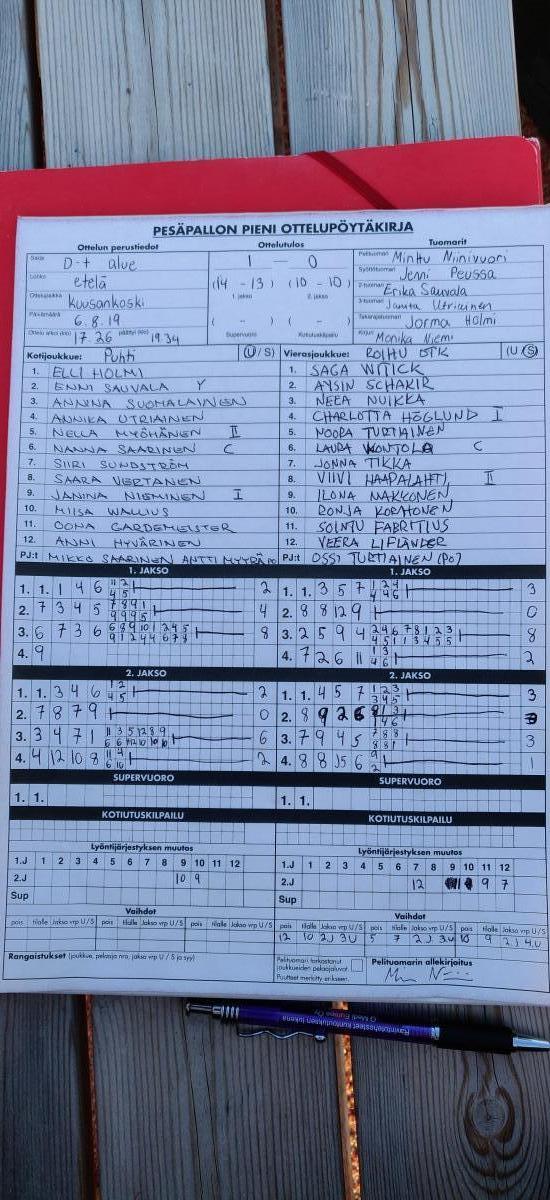 PESÄPALLON PIENI OTTELUPÖYTÄKIRJA
Ottelun perustiedot Ottelutulos Tuomarit
Sarja D-t alue
Lohko etelä
Ottelupaikka Kuusankoski
Päivämäärä 6.8.19
Ottelu alkoi (klo) 17.26 päättyi (klo) 19.34
1 - 0
(14 - 13) (10 - 10)
1. jakso 2. jakso
( - ) ( - )
Supervuoro Kotiutuskilpailu
Pelituomari Minttu Niinivuori
Syöttötuomari Jenni Peussa
2-tuomari Erika Sauvala
3-tuomari Janita Utriainen
Takarajatuomari Jorma Holmi
Kirjuri Monika Niemi
Kotijoukkue: Puhti (U/S)
1. ELLI HOLMI
2. ENNI SAUVALA Y
3. ANNINA SUOMALAINEN
4. ANNIKA UTRIAINEN
5. NELLA MYÖHÄNEN II
6. NANNA SAARINEN C
7. SIIRI SUNDSTRÖM
8. SAARA VERTANEN
9. JANINA NIEMINEN I
10. MIISA WALLIUS
11. OONA GARDEMEISTER
12. ANNI HYVÄRINEN
PJ:t MIKKO SAARINEN ANTTI MYYRÄ
Vierasjoukkue: ROIHU OTK (U/S)
1. SAGA WITICK
2. AYSIN SCHAKIR
3. NEEA NUIKKA
4. CHARLOTTA HÖGLUND I
5. NOORA TURTIAINEN
6. LAURA KONTOLA C
7. JONNA TIKKA
8. VIIVI HAAPALAHTI II
9. ILONA NAKKONEN
10. RONJA KORHONEN
11. SOINTU FABRITIUS
12. VEERA LIFLÄNDER
PJ:t OSSI TURTIAINEN (PO)
1. JAKSO
1. 1. 1 4 6 2
2. 7 3 4 5 4
3. 6 7 3 6 8
4. 9
1. JAKSO
1. 1. 3 5 7 3
2. 8 8 12 9 0
3. 2 5 9 4 8
4. 7 2 6 11 2
2. JAKSO
1. 1. 3 4 6 2
2. 7 8 7 9 0
3. 3 4 7 1 6
4. 4 12 10 8 2
2. JAKSO
1. 1. 4 5 7 3
2. 8 9 2 6 3
3. 7 9 4 5 3
4. 8 8 6 1
SUPERVUORO
1. 1.
SUPERVUORO
1. 1.
KOTIUTUSKILPAILU
KOTIUTUSKILPAILU
Lyöntijärjestyksen muutos
1.J 1 2 3 4 5 6 7 8 9 10 11 12
2.J 10 9
Sup
Lyöntijärjestyksen muutos
1.J 1 2 3 4 5 6 7 8 9 10 11 12
2.J 12 9 7
Sup
Vaihdot
pois tilalle Jakso vrp U/S pois tilalle Jakso vrp U/S pois tilalle Jakso vrp U/S
Vaihdot
pois tilalle Jakso vrp U/S pois tilalle Jakso vrp U/S pois tilalle Jakso vrp U/S
12 10 2J 3U 5 7 2J 3U 10 9 2J 4U
Rangaistukset (joukkue, pelaaja nro, jakso vrp U/S ja syy)
Pelituomari tarkastanut joukkueiden pelaajaluvat.
Puutteet merkitty erikseen.
Pelituomarin allekirjoitus
Ravintotehosteet kuntoutuksen tukena
G Medi Europe Oy